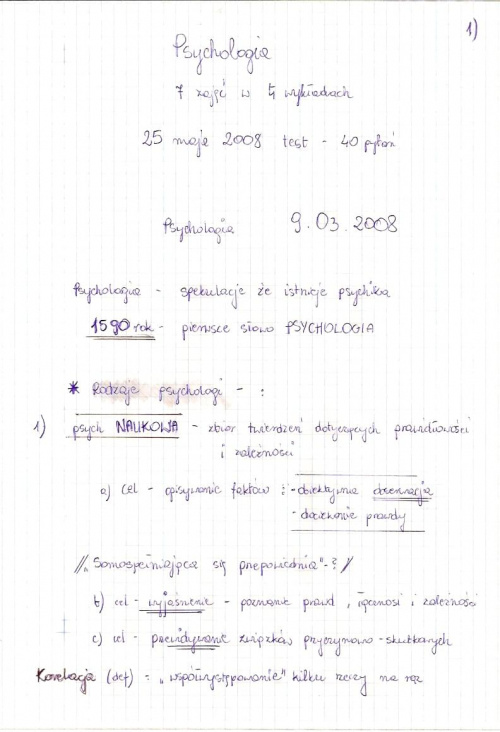 1)
Psychologia
7 zajęć w 4 wykładach
25 maja 2008 test - 40 pytań
Psychologia 9.03.2008
Psychologia - spekulacje że istnieje psychika
1590 rok - pierwsze słowo PSYCHOLOGIA
* Rodzaje psychologi - :
1) psych NAUKOWA - zbiór twierdzeń dotyczących prawidłowości
i zależności
a) cel - opisywanie faktów : - obiektywna obserwacja
- dociekanie prawdy
// "Samospełniająca się przepowiednia" - ? /
b) cel - wyjaśnienie - poznanie prawd , łączności i zależności
c) cel - przewidywanie związków przyczynowo - skutkowych
Korelacja (def) : "współwystępowanie" kilku rzeczy na raz